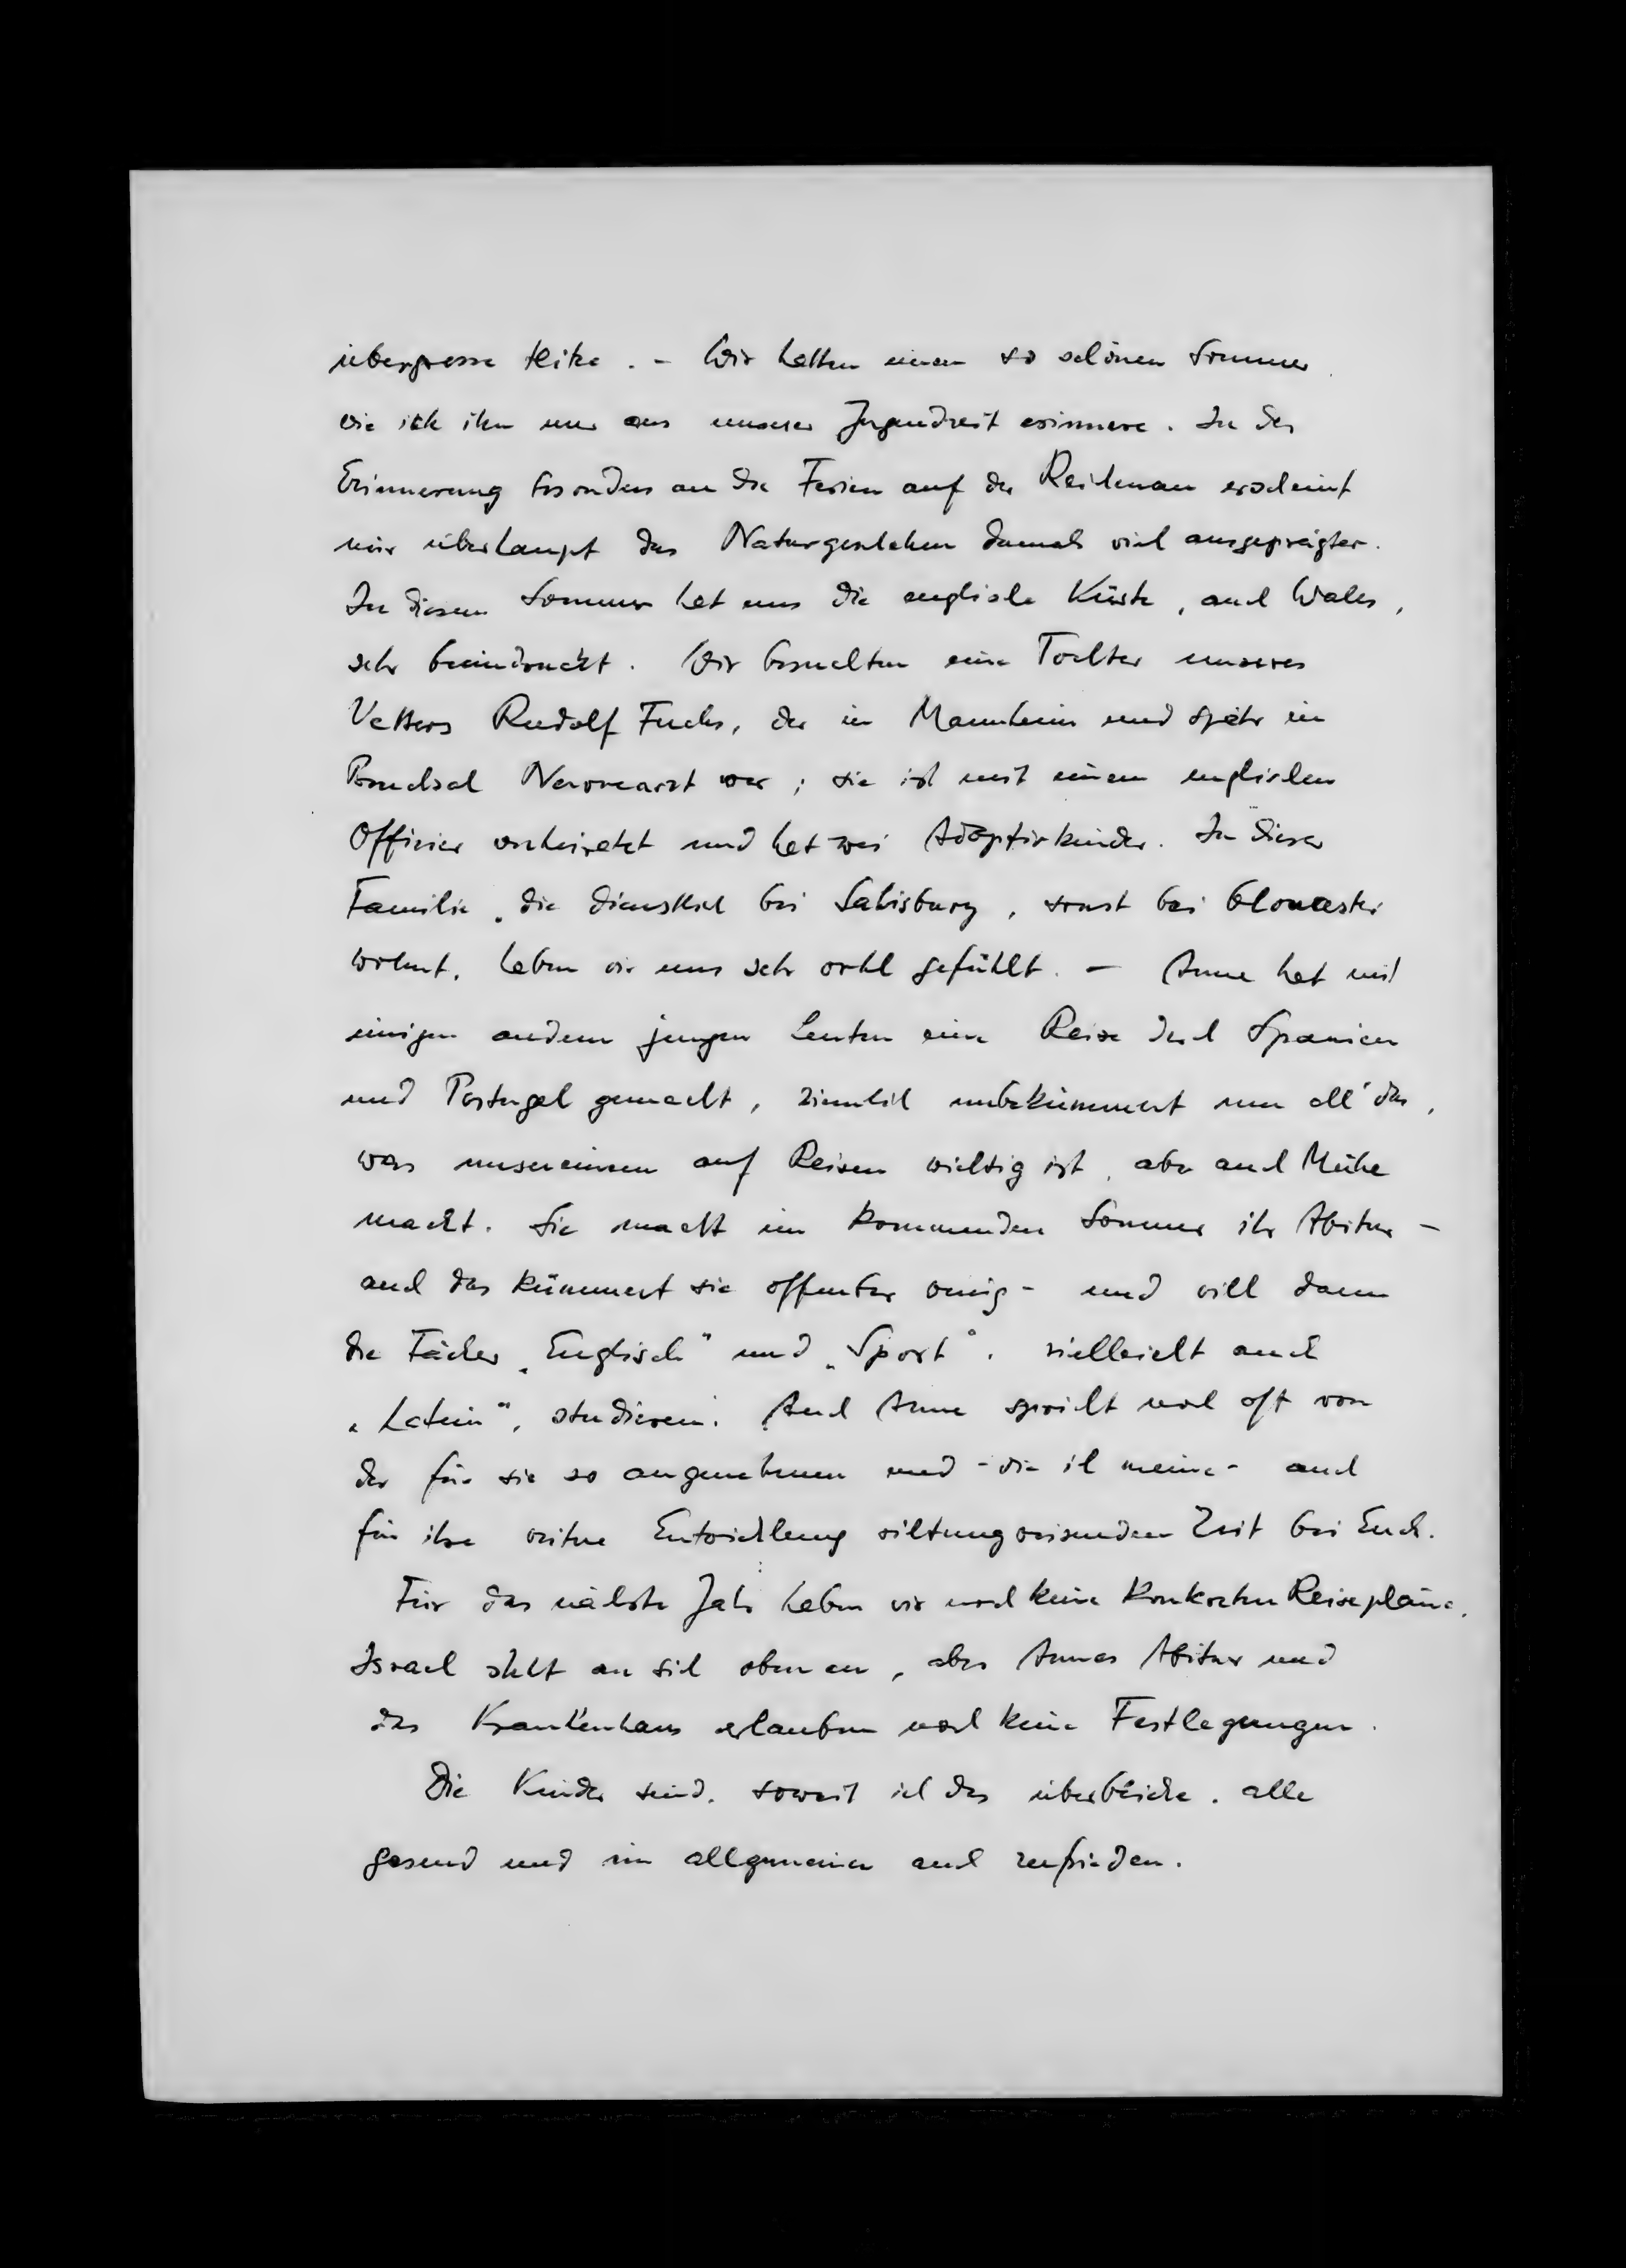 übergrosse Hitze. - Wir hatten einen so schönen Sommer
wie ich ihn nur aus unserer Jugendzeit erinnere. In der
Erinnerung besonders an die Ferien auf der Reichenau erscheint
mir überhaupt das Naturgeschehen damals viel ausgeprägter.
In diesem Sommer hat uns die englische Küste, auch Wales,
sehr beeindruckt. Wir besuchten eine Tochter unseres
Vetters Rudolf Fuchs, der in Mannheim und später in
Bruchsal Nervenarzt war; sie ist mit einem englischen
Offizier verheiratet und hat zwei Adoptivkinder. In dieser
Familie, die dienstlich bei Salisbury, sonst bei Gloucester
wohnt, haben wir uns sehr wohl gefühlt. - Anne hat mit
einigen andern jungen Leuten eine Reise durch Spanien
und Portugal gemacht, ziemlich unbekümmert um all' das,
was unsereinem auf Reisen wichtig ist, aber auch Mühe
macht. Sie macht im kommenden Sommer ihr Abitur -
auch das kümmert sie offenbar wenig - und will dann
die Fächer „Englisch" und „Sport", vielleicht auch
„Latein", studieren. Auch Anne spricht noch oft von
der für sie so angenehmen und - wie ich meine - auch
für ihre weitere Entwicklung richtungweisenden Zeit bei Euch.
Für das nächste Jahr haben wir noch keine konkreten Reisepläne.
Israel steht an sich oben an, aber Annes Abitur und
das Krankenhaus erlauben noch keine Festlegungen.
Die Kinder sind, soweit ich das überblicke, alle
gesund und im allgemeinen auch zufrieden.